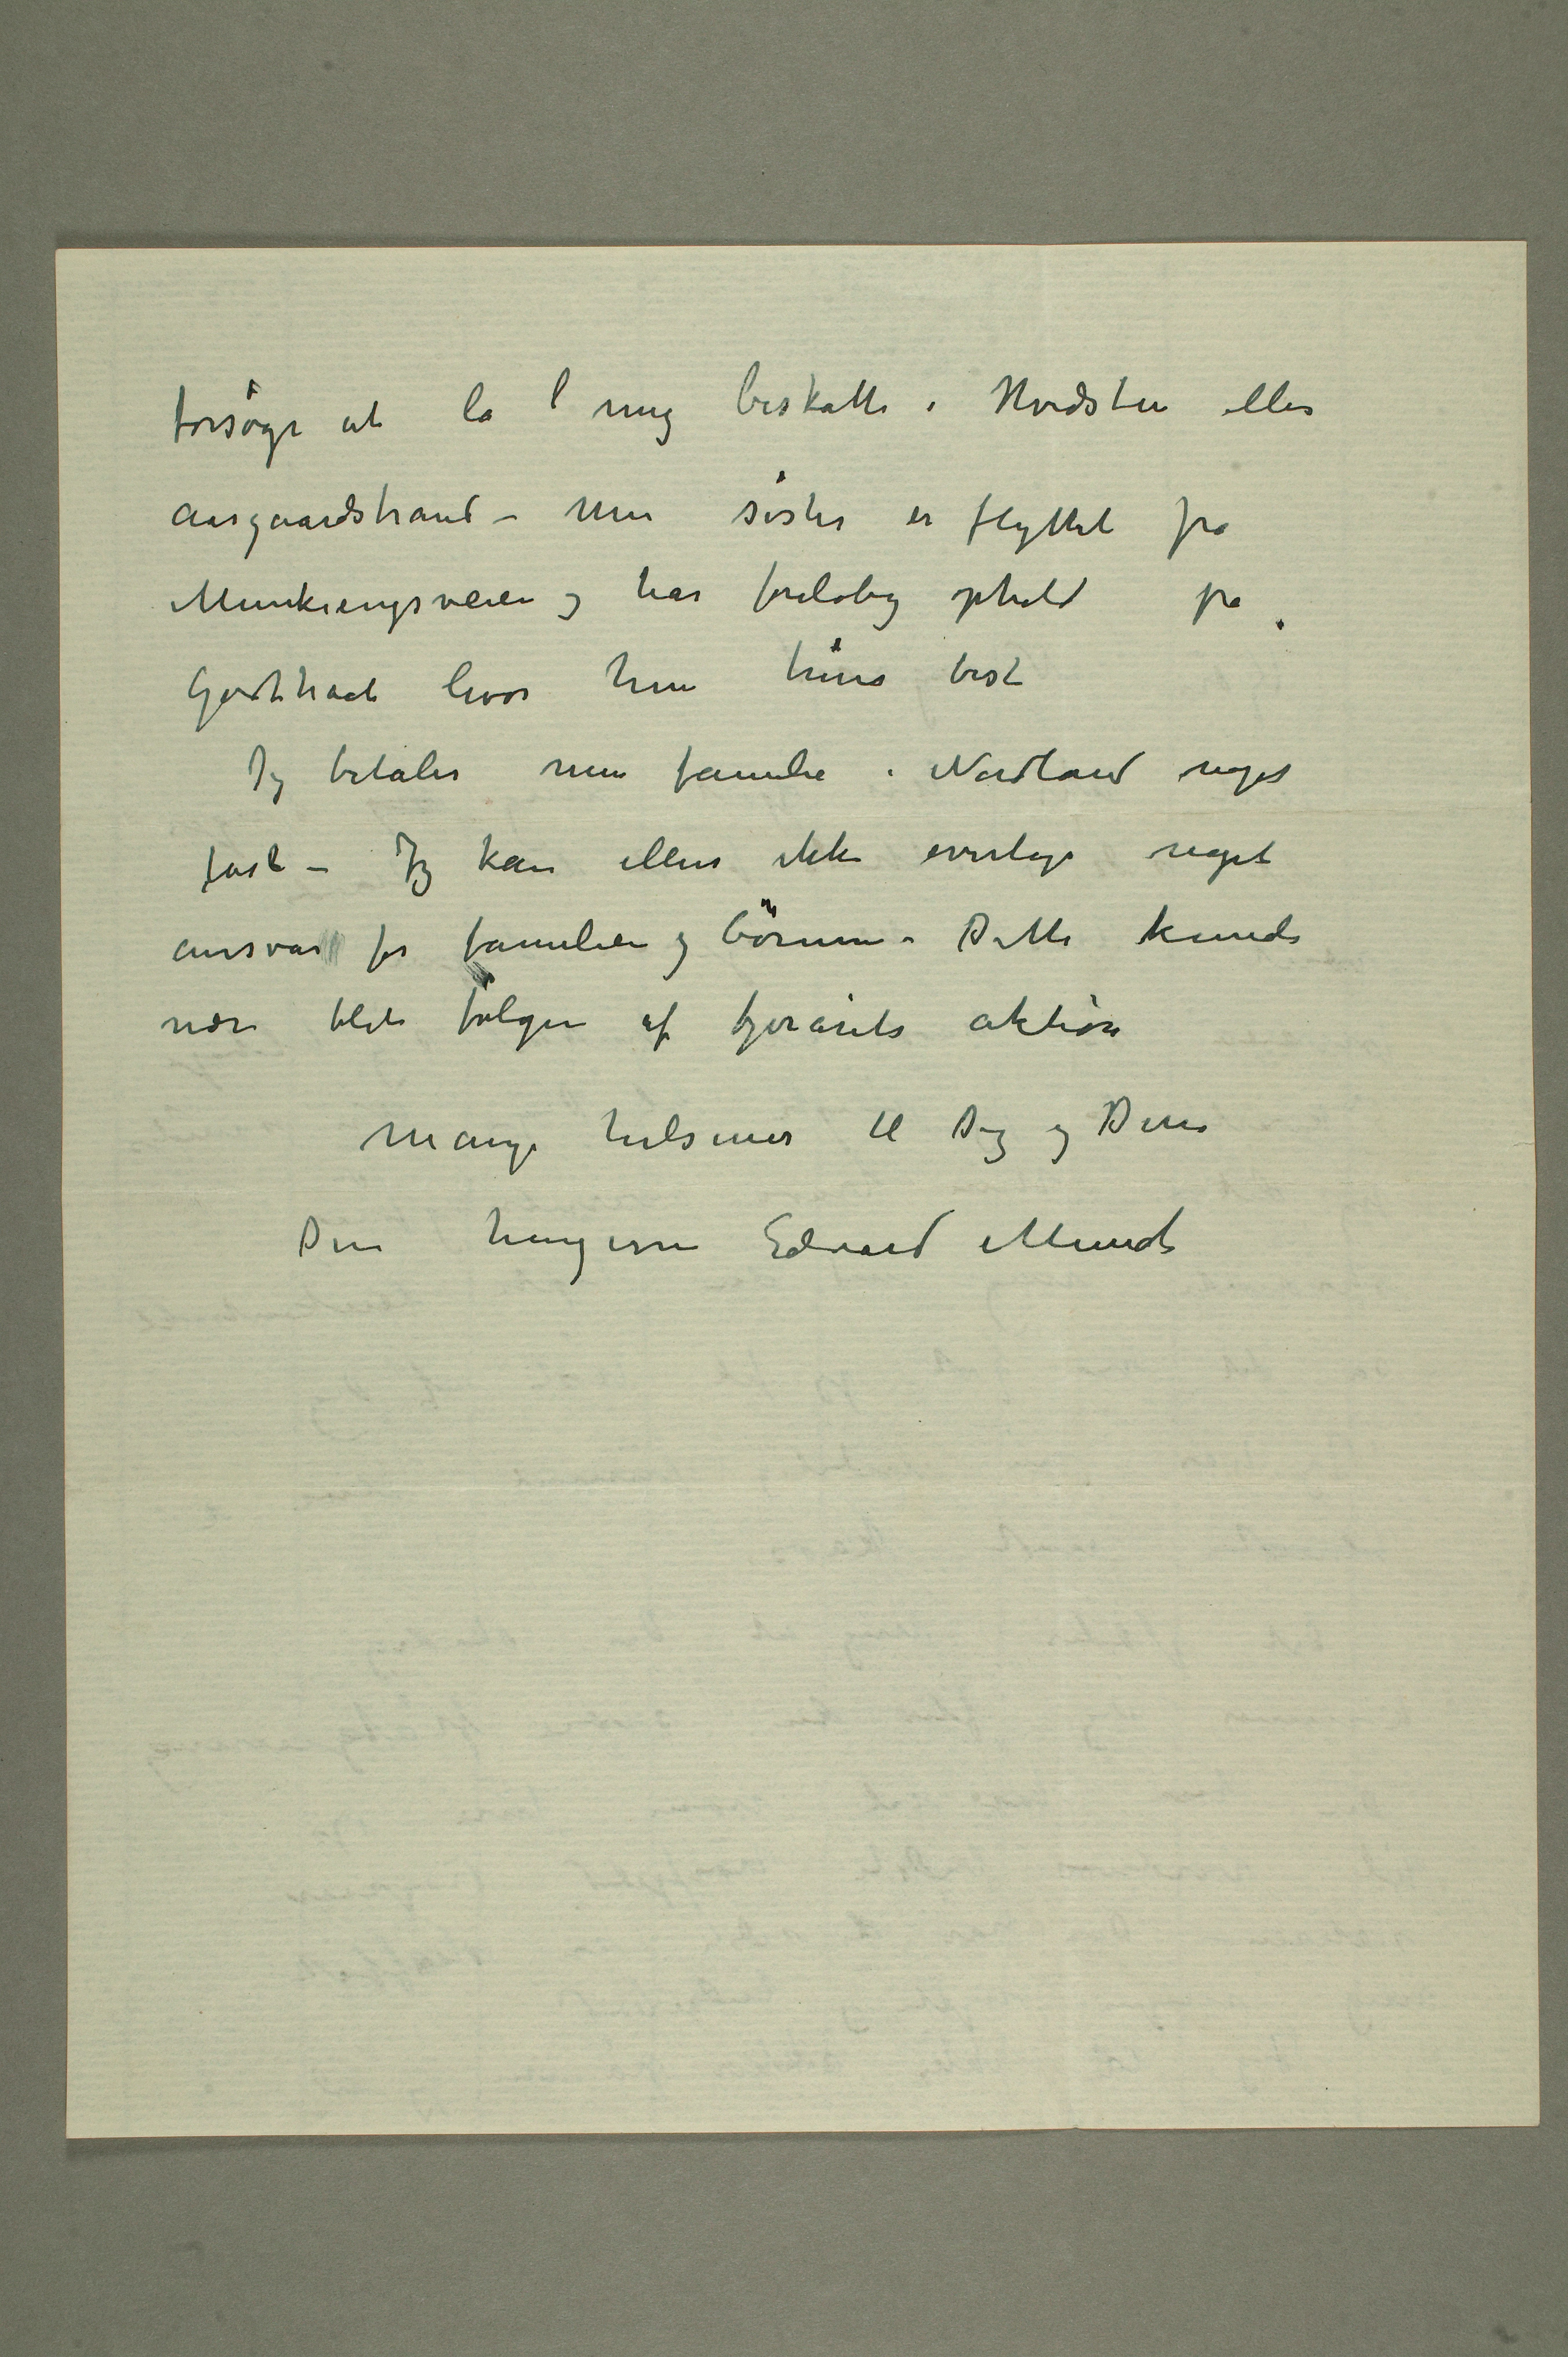 forsøge at la mig beskatte i Hvidsten eller
Aasgaardstrand – Min søster er flyttet fra
Munkengsveien og har foreløbig ophold på
Godthaab hvor hun trives bedst
Jeg betaler min familie i Nordland noget
fast – Jeg kan ellers ikke overtage noget
ansvar for familien og børnene – Dette kunde
nær blit følgen af fjorårets aktion
Mange hilsener til Dig og Dine
Din hengivne Edvard Munch